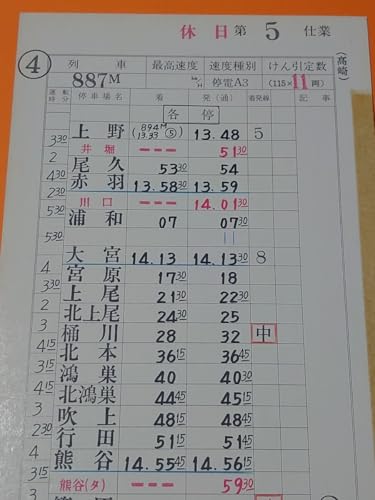 休日 第 5 仕業
(高崎)
④ 列車 最高速度 速度種別 けん引定数
887M km/H 停電A3 (115×11両)
運転時分 停車場名 着 発(通) 着発線 記事
各停
3 30 上野 894M 13.33 ⑤ 13.48 5
2 井堀 --- 51 30
2 尾久 53 30 54
2 30 赤羽 13.58 30 13.59
2 川口 --- 14.01 30
5 30 浦和 07 07 30
5 30
4 大宮 14.13 14.13 30 8
宮原 17 30 18
上尾 21 30 22 30
2 北上尾 24 30 25
3 桶川 28 32 中
4 15 北本 36 15 36 45
3 15 鴻巣 40 40 30
4 北鴻巣 44 30 45
3 吹上 48 15 48 45
2 30 行田 51 15 51 45
4 熊谷 14.55 45 14.56 15
3 15 熊谷(タ) --- 59 30